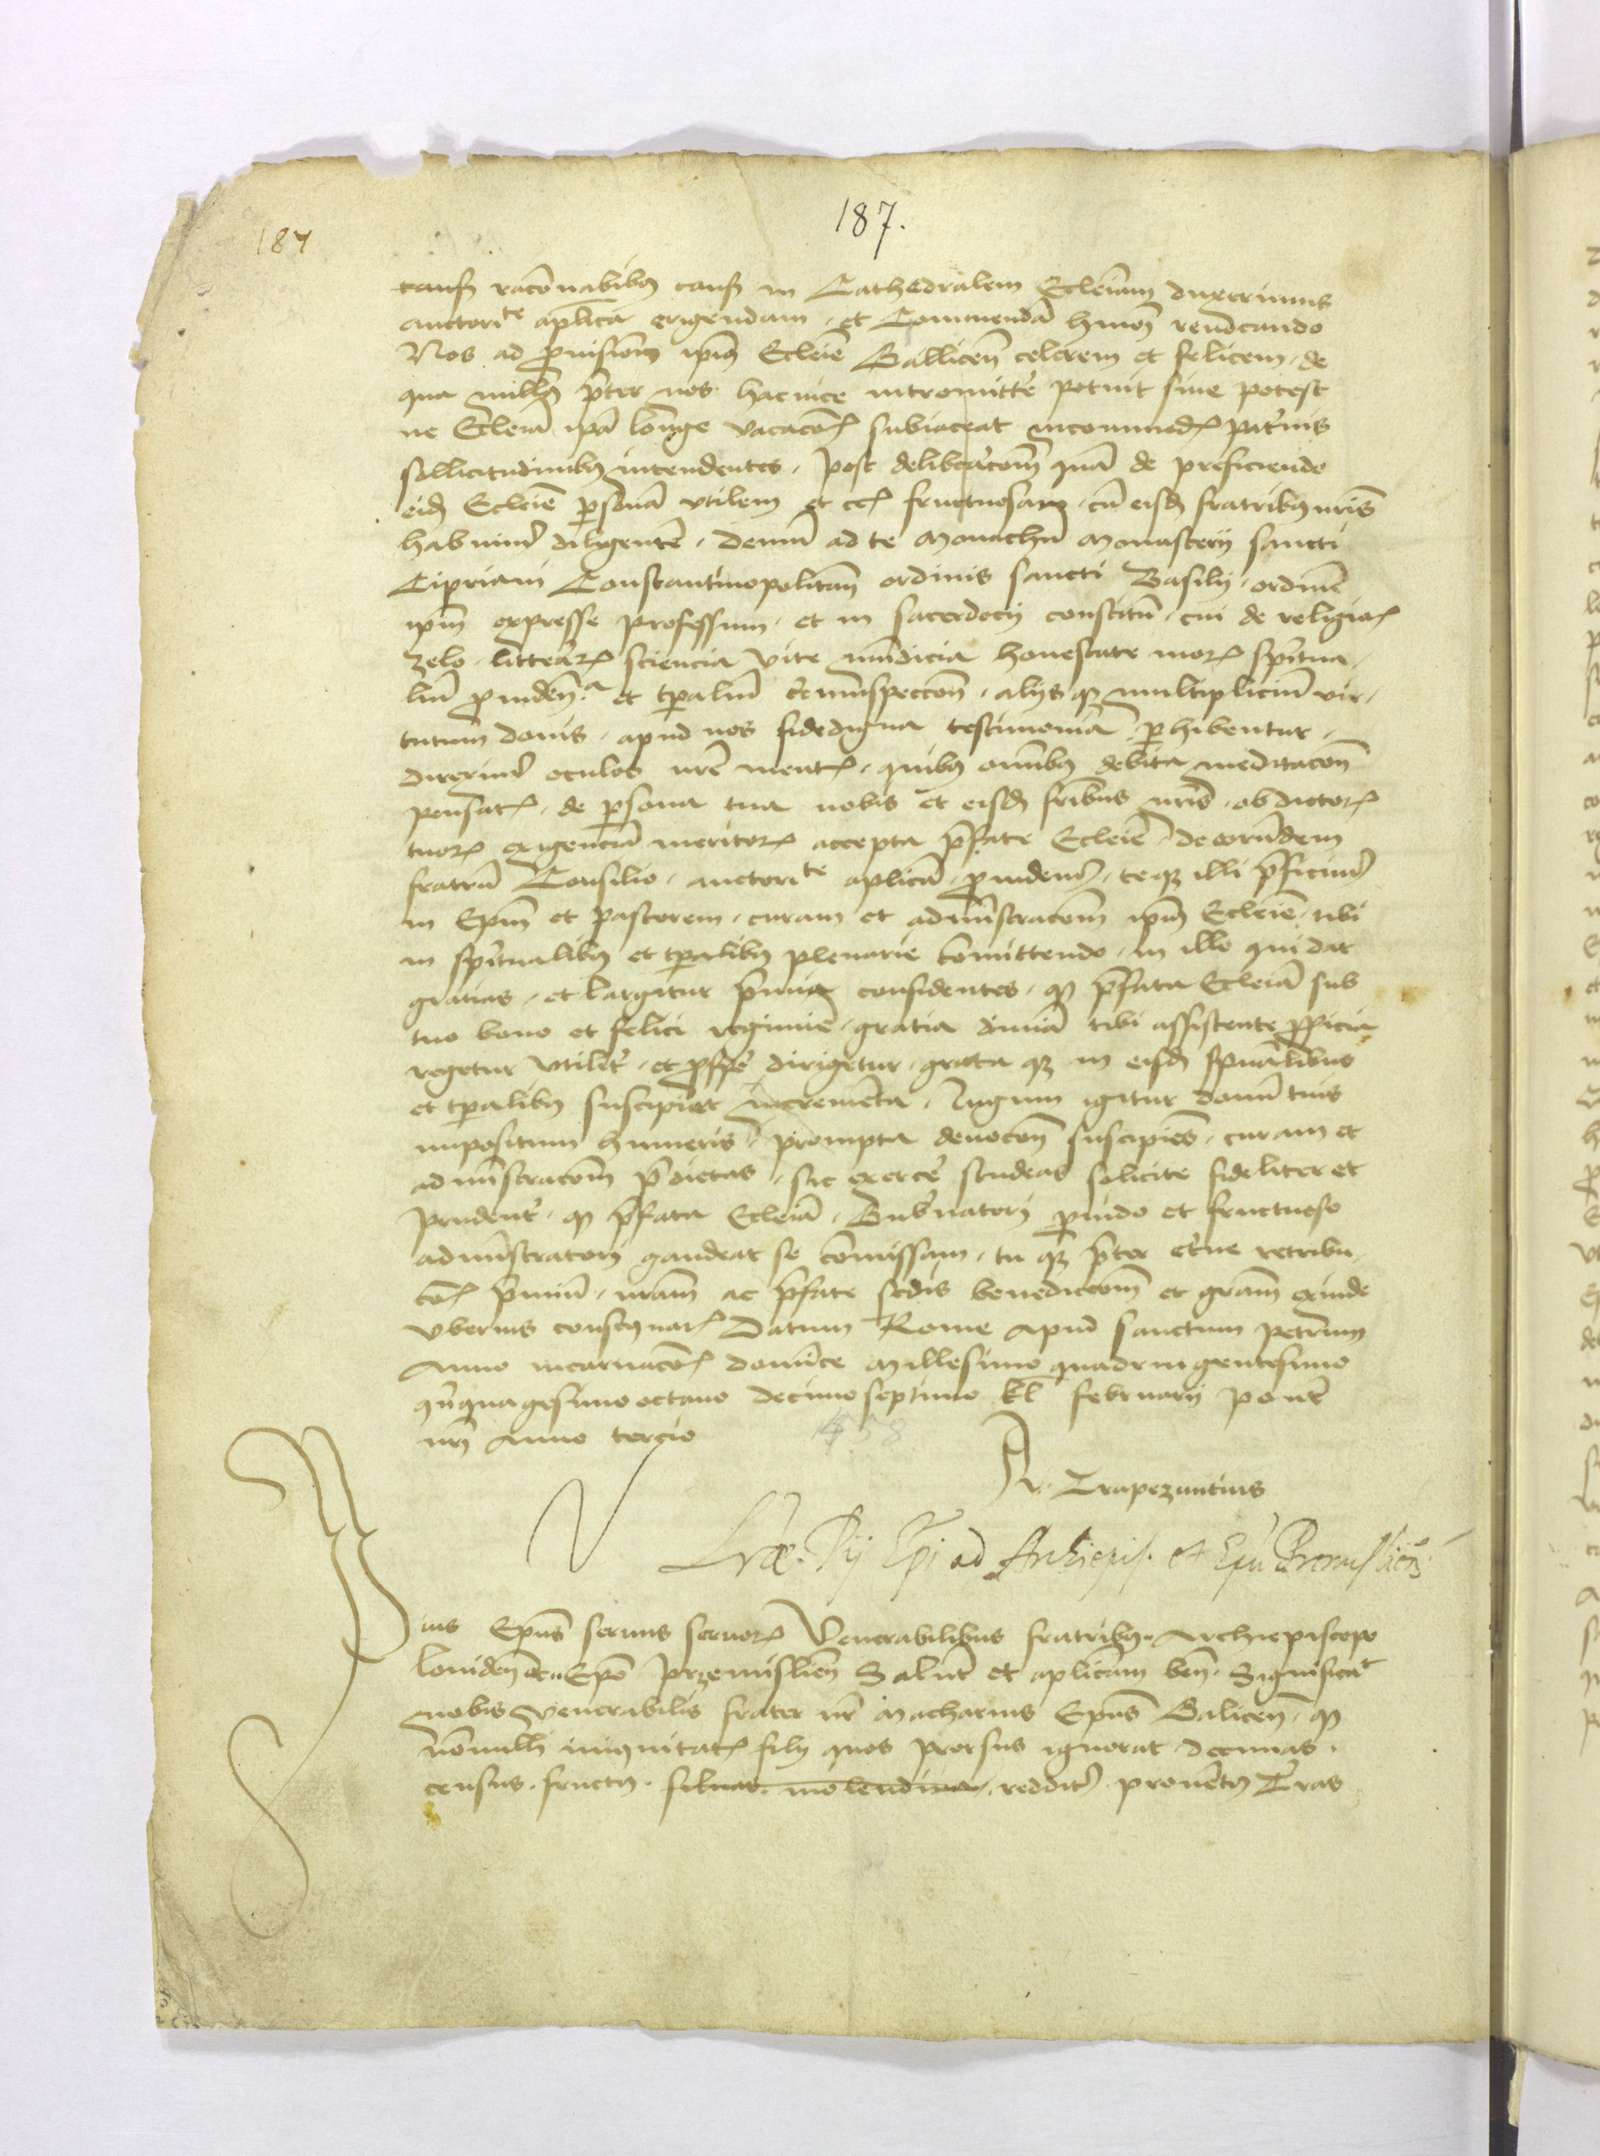 187.
187
causis racōnabilibus caus in Cathedralem Ecclēiam duxerimus
auctoritᵗᵉ aplica erigendam et Commendā hmōi reuocando
Nos ad prouisiōem ipīus Ecclēie Gallicen̄ celerem et felicem, de
qua nullus preter nos hac uice intromitte potuit siue potest
ne Ecclēia ipā longe vacacōis subiaceat incommodis paternis
sollicitudinibus intendentes, post deliberacōem quā de preficiendo
eidem Ecclēie personā vtilem et eciam fructuosam cū eisdem fratribus nrīs
habuimus diligentē, demū ad te Monachū Monasterij sancti
Cipriani Constantinopolitan̄ ordinis sancti Basilij, ordinē
ipm̄ expresse professum, et in sacerdocij constitutū, cui de religionis
zelo, litterarū sciencia vite mūdicia honestate morū spiritua-
liū prouidencia et tpaliū circumspeccōe, alijsque multipliciū vir-
tutum donis, apud nos fidedigna testimonia perhibentur,
direximus oculos nrē mentis, quibus omnibus debita meditacōe
pensatis, de persona tua nobis et eisdem frībus nrīs ob dictorū
tuorū exigenciā meritorū accepta prefate Ecclēie de eorundem
fratrū Consilio, auctoritᵗᵉ aplica prouidemus, teque illi preficimus
in Epm̄ et pastorem, curam et administracōem ipīus Ecclēie tibi
in spiritualibus et tpalibus plenarie cōmittendo, in illo qui dat
gratias, et largitur premia confidentes, quod prefata Ecclēia sub
tuo bono et felici regimine, gratia diuina tibi assistente propicia
regetur vtiliter, et prospere dirigetur, grata que in eisdem spūalibus
et tpalibus suscipiet incrementa, Iugum igitur domini tuis
impositum humeris, prompta deuocōe suscipiens, curam et
administracōem predictas, sic exercere studeas solicite fideliter et
prudenter, quod prefata Ecclēia, Gubernatori prouido et fructuoso
administratori gaudeat se cōmissam, tu que preter eterne retribu-
cōis premiū, nram̄ ac prefate sedis benediccōem et gram̄ exinde
vberius consequaris Datum Rome apud sanctum petrum
Anno incarnacōis dominice Millesimo quadringentesimo
quinquagesimo octauo decimoseptimo kl̄ februarij pontᵗ
nrī Anno tercio
1458
A. Trapezuntius
Lræ. Pij Epi ad Archiepis. et Epū Premislien̄
Pius Epūs seruus seruorū Venerabilibus fratribus Archiepiscopo
Leuiden̄ et Epō Przemislien̄ Salutē et aplicam ben̄. Significat
nobis venerabilis frater nr̄ Macharius Epūs Galicen̄, quod
nōnulli iniquitatis filij quos prorsus ignorat decimas,
census, fructus, siluas molendina, redditus prouentus Terras